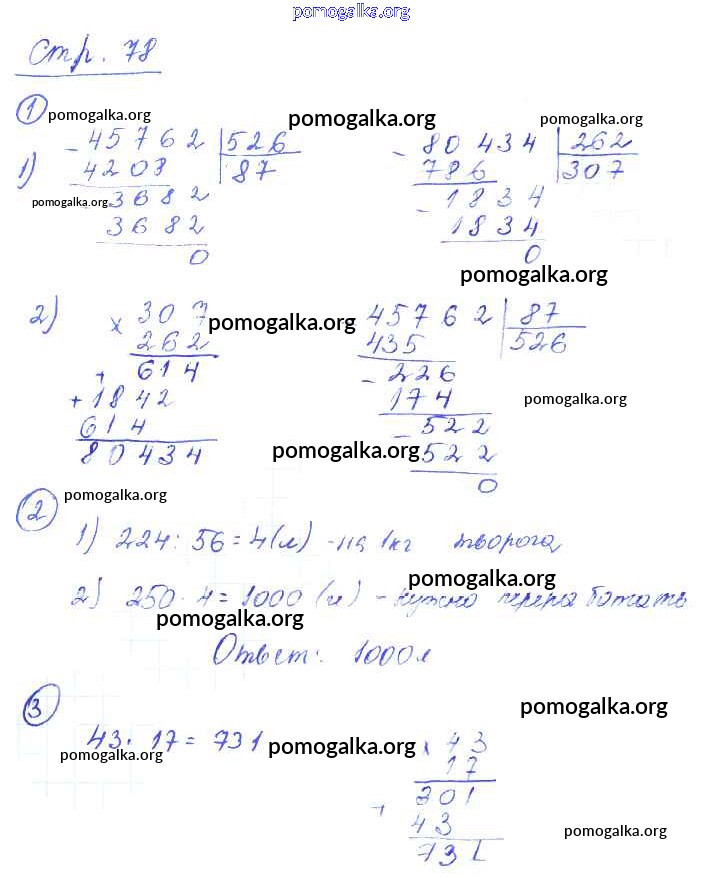 pomogalka.org
Стр. 78
① pomogalka.org pomogalka.org pomogalka.org
1) - 45762 | 526 - 80434 | 262
4208 | 87 786 | 307
pomogalka.org 3682 - 1834
3682 1834
0 0
pomogalka.org
2) × 307 pomogalka.org 45762 | 87
262 435 | 526
+ 614 - 226
+ 1842 174 pomogalka.org
614 - 522
80434 pomogalka.org 522
0
② pomogalka.org
1) 224 : 56 = 4 (л) - на 1кг творога
pomogalka.org
2) 250 · 4 = 1000 (л) - нужно переработать
pomogalka.org
Ответ: 1000 л
③ pomogalka.org
43 · 17 = 731 pomogalka.org × 43
pomogalka.org 17
+ 301
43 pomogalka.org
731